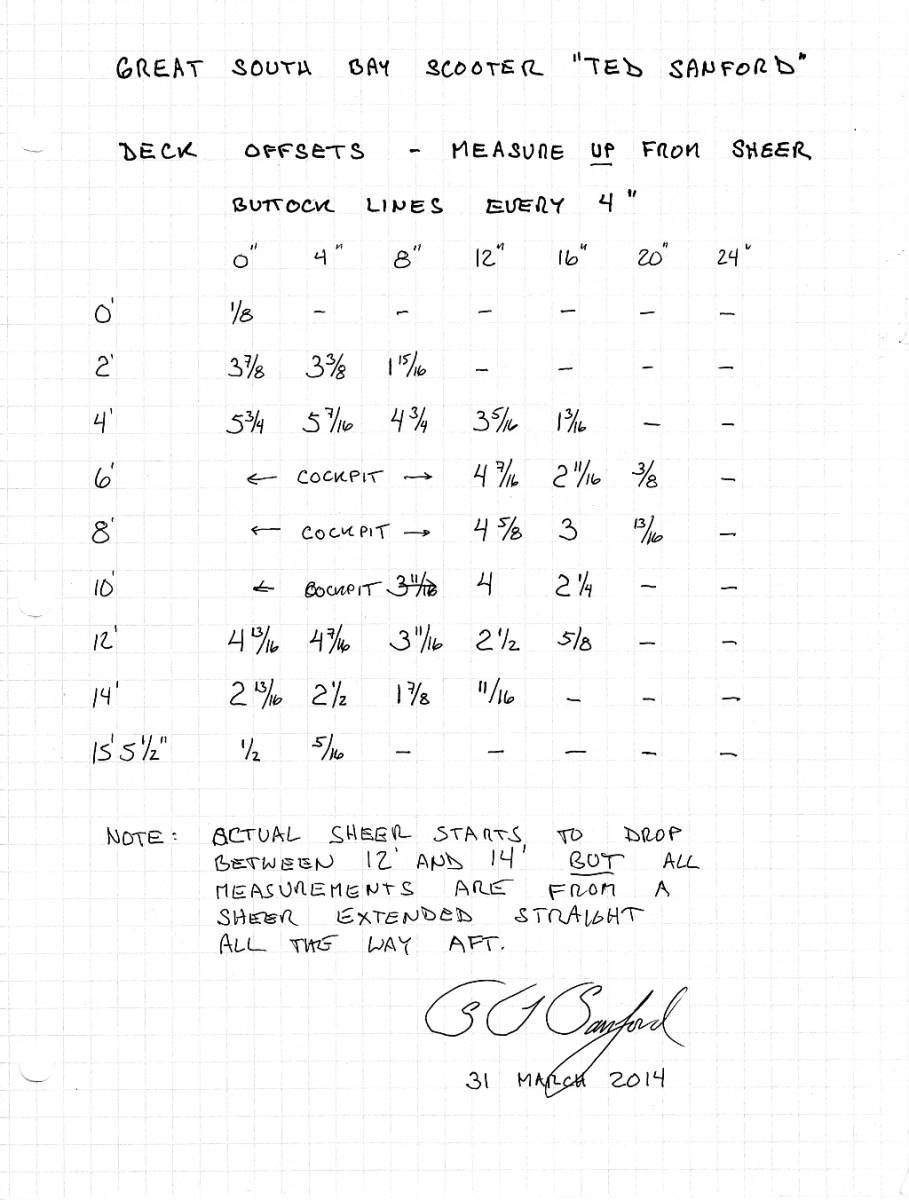 GREAT SOUTH BAY SCOOTER "TED SANFORD"
DECK OFFSETS - MEASURE UP FROM SHEER
BUTTOCK LINES EVERY 4"
0" 4" 8" 12" 16" 20" 24"
0' 1/8 - - - - - -
2' 3 7/8 3 3/8 1 15/16 - - - -
4' 5 3/4 5 7/16 4 3/4 3 5/16 1 3/16 - -
6' ← COCKPIT → 4 7/16 2 11/16 3/8 -
8' ← COCKPIT → 4 5/8 3 13/16 -
10' ← COCKPIT 3 11/16 4 2 1/4 - -
12' 4 13/16 4 7/16 3 11/16 2 1/2 5/8 - -
14' 2 13/16 2 1/2 1 7/8 11/16 - - -
15' 5 1/2" 1/2 5/16 - - - - -
NOTE: ACTUAL SHEER STARTS TO DROP
BETWEEN 12' AND 14' BUT ALL
MEASUREMENTS ARE FROM A
SHEER EXTENDED STRAIGHT
ALL THE WAY AFT.
Sanford
31 MARCH 2014